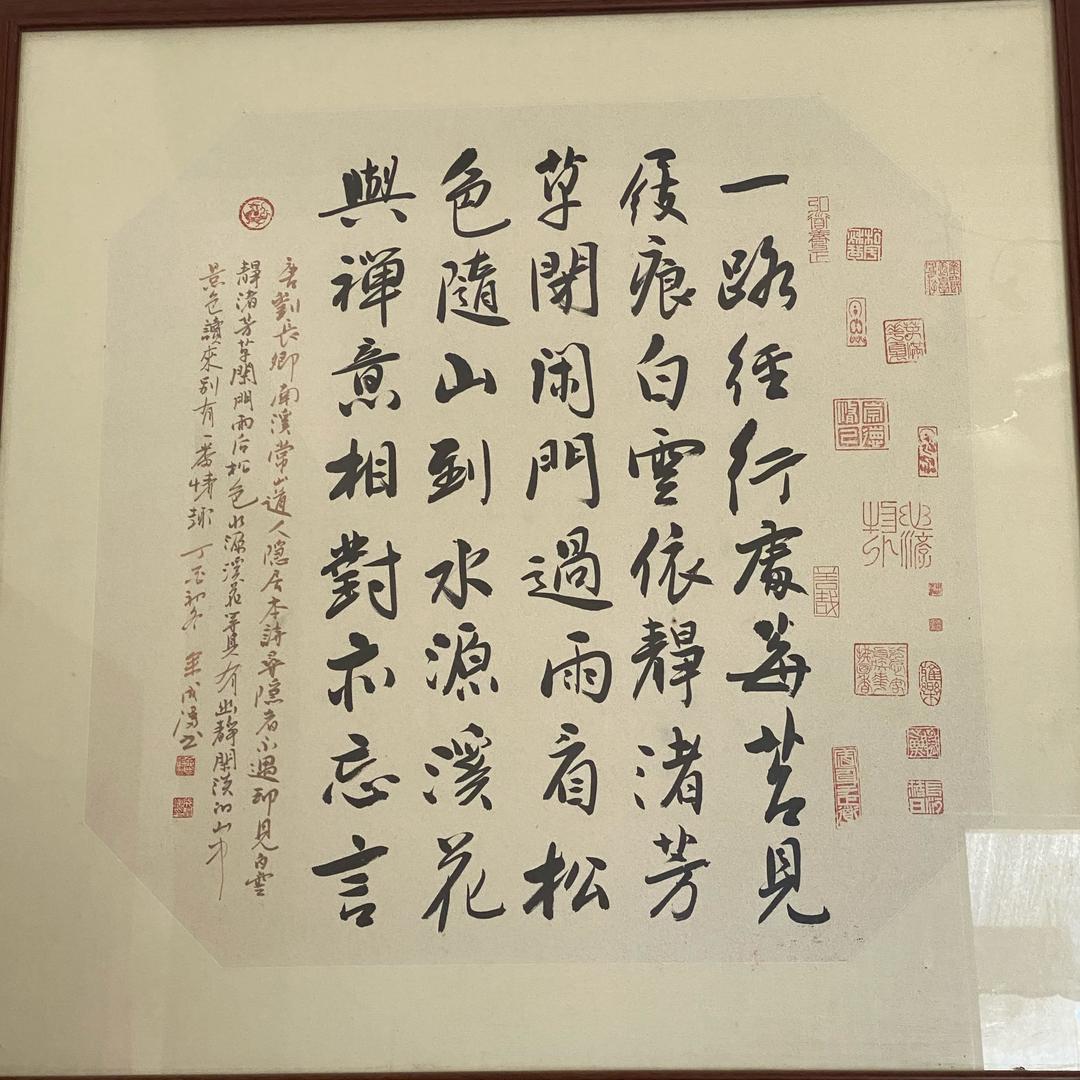 一路徑行處莓苔見
履痕白雲依靜渚芳
草閉閑門過雨看松
色隨山到水源溪花
與禪意相對亦忘言
唐劉長卿南溪常山道人隐居本詩尋隱者不遇却見白雲
靜渚芳草閑門雨后松色水源溪花具有幽靜閑淡的山中
景色讀來别有一番情趣丁丑初冬書
弘道養正
崇德修己
善哉